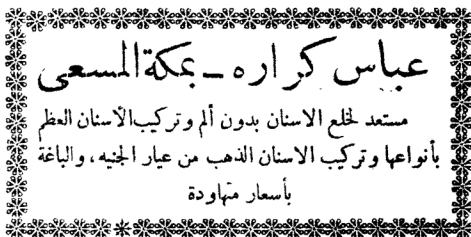 عباس كراره - بمكة المسعى
مستعد لخلع الاسنان بدون ألم وتركيب الأسنان العظم
بأنواعها وتركيب الاسنان الذهب من عيار الجنيه، والباغة
بأسعار متهاودة